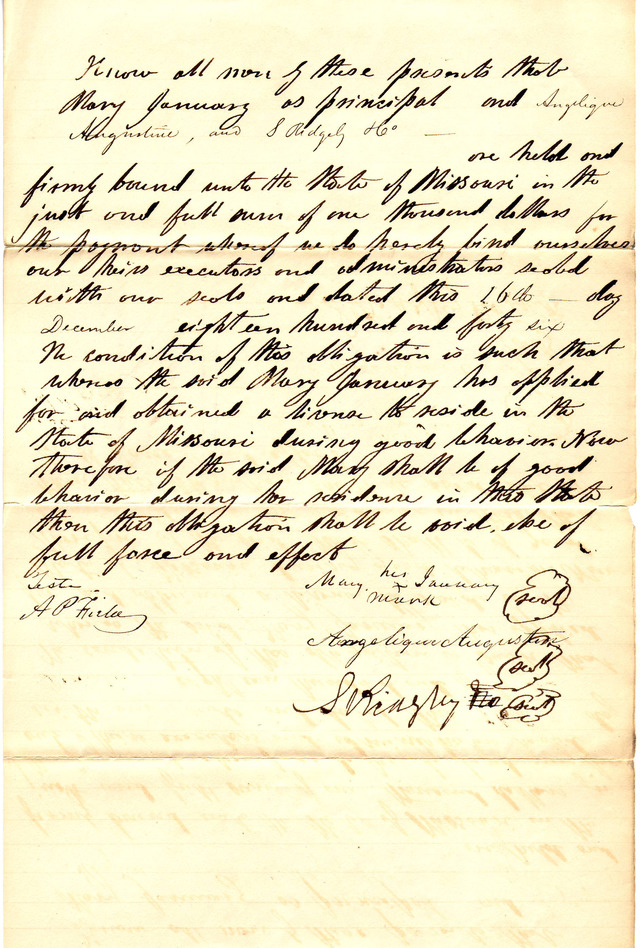 Know all men by these presents that
Mary January as principal and Angelique
Augustine, and S Ridgely & Co —
are held and
firmly bound unto the State of Missouri in the
just and full sum of one thousand dollars for
the payment whereof we do hereby bind ourselves
our heirs executors and administrators sealed
with our seals and dated this 26th — day
December eighteen hundred and forty six
The condition of this obligation is such that
whereas the said Mary January has applied
for and obtained a license to reside in the
State of Missouri during good behavior. Now
therefore if the said Mary shall be of good
behavior during her residence in this State
then this obligation shall be void, else of
full force and effect
Teste
A P
Mary her January
mark
seal
Angelique Augustine
seal
S Ridgely
seal